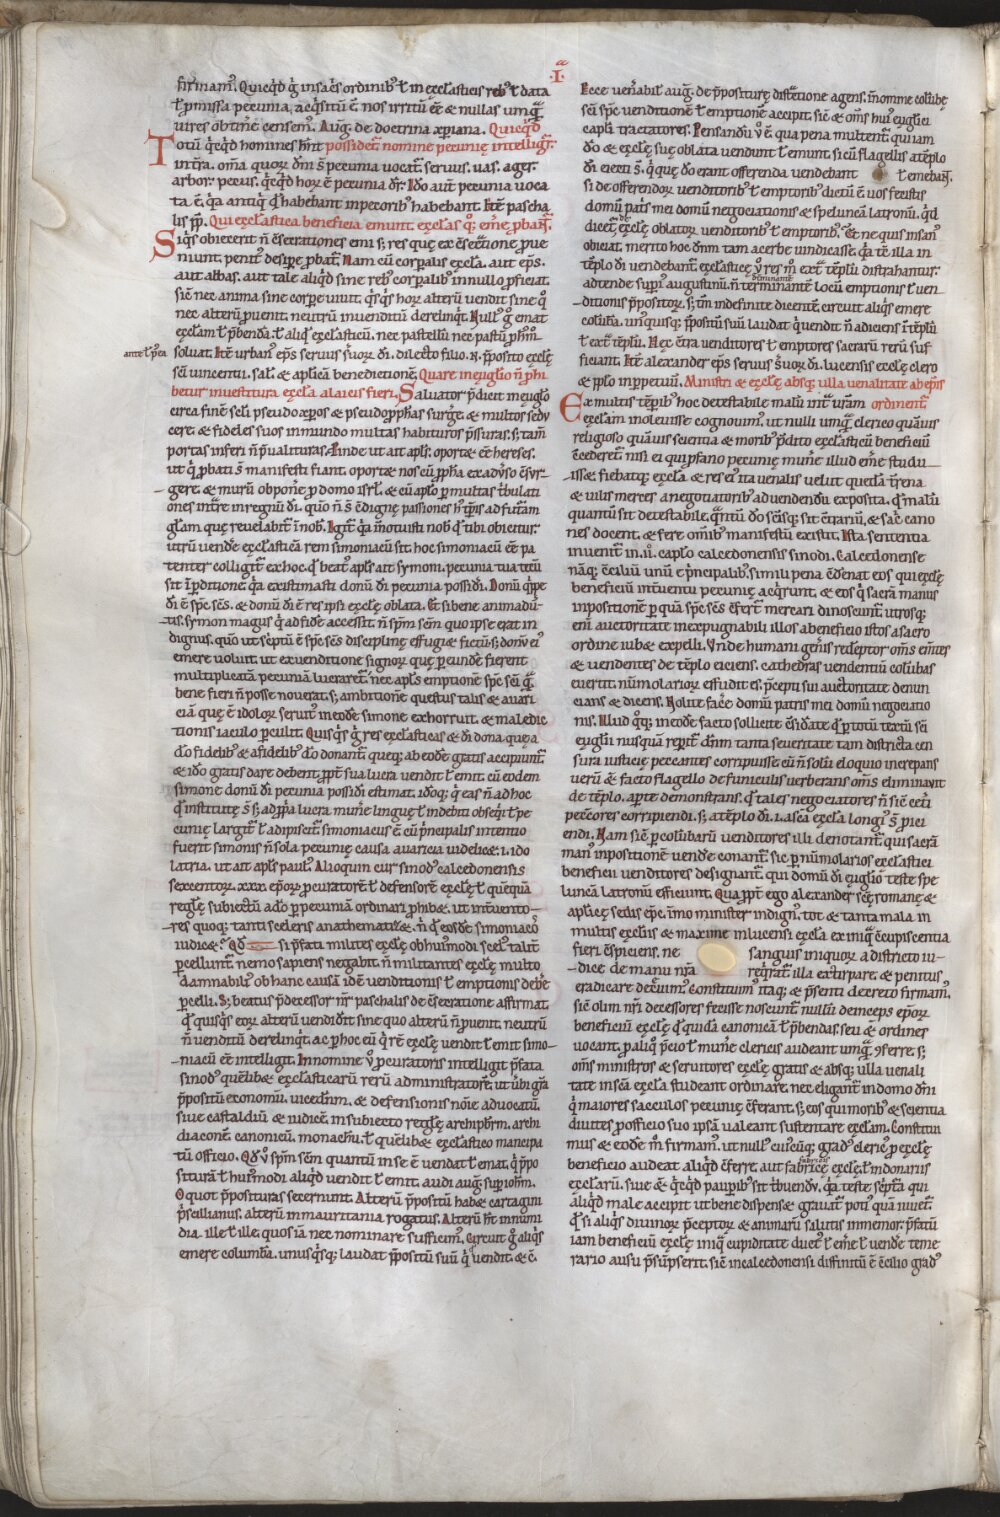 ·I·
firmam᷒. Quicq̇d g̊ in sac̄s ordinib᷒ ł in ęccl̄asticis reb᷒ ł data
ł p̄missa pecunia, acq̇sitū ē. nos irritū eē & nullas umq̄
uires obtinē censem᷒. Auḡ. de doctrina xp̄iana. Quicq̇d
Totū q̇cq̇d homines hn̄t possident, nomine pecunię intelligit᷒
in tr̄a. om̄a quoꝝ dn̄i s̄ pecunia uocat᷒. seruus. uas. ager.
arbor. pecus. q̇cq̇d hoꝝ ē pecunia dr̄. Ido aut̄ pecunia uoca
ta ē. q̇a antiq̇ qd̄ habebant in pecorib᷒ habebant. Itē pascha
lis pp̄. Qui ęccl̄astica beneficia emunt. ęccl̄as q̊q; em̄e ꝓbant᷒.
Siq̇s obiecerit n̄ c̄secrationes emi s; res quę ex c̄secratione ꝓue
niunt. penit᷒ desipe ꝓbat᷒. Nam cū corꝑalis ęccl̄a. aut ep̄s.
aut abbas. aut tale aliq̇d sine reb᷒ corꝑalib᷒ in nullo ꝓficiat.
sic̄ nec anima sine corꝑe uiuit. q̇sq̇s hoꝝ alterū uendit sine q̊
nec alterū ꝓuenit. neutrū inuenditū derelinq̇t. Null᷒ g̊ emat
ęccl̄am ł p̄benda. ł aliq̇ ęccl̄asticū. nec pastellū nec pastū p̄hm̄
ante ł p᷒ea
soluat. Itē urban᷒ ep̄s seruus seruoꝝ di. dilecto filio .N. p̄posito ęccl̄ę
sc̄i uincentii. sal̄. & aplicā benedictionē. Quare in euglio n̄ ꝓhi
betur inuestitura ęccl̄a a laicis fieri. Saluator p̄dicit in euglo
circa finē scl̄i pseudo xp̄os & pseudo ꝓph̄as surg̾e. & multos sedu
cere. & fideles suos in mundo multas habituros p̄ssuras. s; tam̄
portas inferi n̄ p̄ualituras. Vnde ut ait apl̄s. oportet & eē hereses.
ut q̇ ꝓbati s̄ manifesti fiant. oportet nos cū ꝓph̄a ex aduso c̄sur-
gere. & murū oppon̄e ꝓ domo isrl̄. & cū aplo ꝑ multas t̾bulati
ones int̾re in regnū di. quō n̄ s̄ c̄dignę passiones hui᷒ tp̄is ad futam
gl̄am quę reuelabit᷒ in nob̄. Igit᷒ q̇a in motusti nob̄ qd̄ tibi obicitur
utrū uende ęccl̄asticā rem simoniacū sit. hoc simoniacū eē pa
tenter colligit᷒ ex hoc. qd̄ beat᷒ apl̄s ait symoni. pecunia tua tecū
sit in ꝑditionē. q̇a existimasti donū di pecunia possidi. Donū q̇ppe
di ē sp̄c sc̄s. & donū di ē res ipsi ęccl̄ę oblata. Et si bene animadu᷒
tis. symon magus q̇ ad fidē accessit. n̄ sp̄m sc̄m quo ipse erat in
dignus. quō ut sc̾ptū ē sp̄c sc̄s disciplinę effugi& fictū; s; donū ei᷒
emere uoluit. ut ex uenditione signoꝝ quę ꝑ eundē fierent
multiplicatā pecuniā lucraret᷒. nec apl̄s emptionē sp̄c sc̄i q̄
bene fieri n̄ posse nouerat. s; ambitionē questus talis & auari
ciā quę ē idoloꝝ seruit᷒ in eodē simone exhorruit. & maledic
tionis iaculo ꝑculit. Quisq̇s g̊ res ęccl̄asticas & di dona. quę a
do fidelib᷒ & a fidelib᷒ do donant᷒. queq; ab eodē gratis accipiunt᷒
& ido gratis dare debent. ꝓpt̾ sua lucra uendit ł emit. cū eodem
simone donū di pecunia possidi estimat. idoq; q̇ eas n̄ ad hoc
qd̄ institutę s̄ s; ad ꝓpria lucra. mun̄e linguę ł indebiti obseq̇i ł pe
cunię largit᷒ ł adipiscit᷒. simoniacus ē. cū ṗncipalis intentio
fuerit simonis n̄ sola pecunię causa. auaricia uidelicet .i. ido
latria. ut ait apl̄s paul᷒. Alioquin cur sinod᷒ calcedonensis
sexcentoꝝ. xxx. ep̄oꝝ ꝓcuratorē ł defensorē ęccl̄ę ł quequā
reglę subiectū adō ꝑ pecuniā ordinari ꝓhibet. ut int̾uento-
res quoq; tanti sceleris anathematizet. n̄ qd̄ eosdē simoniacos
iudicet? Qd̄ si p̄fati milites ęccl̄ę obhui᷒modi scel᷒ talit᷒
ꝑcellunt᷒. nemo sapiens negabit. n̄ militantes ęccl̄ę multo
damnabili᷒ ob hanc causā idē uenditionis ł emptionis debere
ꝑcelli. S; beatus p̄decessor nr̄ paschalis de c̄secratione affirmat
qd̄ quisq̇s eoꝝ alterū uendidit sine quo alterū n̄ ꝓuenit. neutrū
n̄ uenditū derelinq̇t. ac ꝑ hoc cū q̇ rē ęccl̄ę uendit ł emit simo-
niacū eē intelligit. In nomine u̾o ꝓcuratoris intelligit p̄fata
sinod᷒ quēlib& ęccl̄asticarū rerū administratorē. ut u̾bi gr̄a
p̄positū economū. uicednm̄. & defensionis noīe aduocatū.
siue castaldiū & iudicē. in subiecto reglę archiprb̄m. archi
diaconē. canonicū. monachū. ł quēlib& ęccl̄astico mancipa
tū officio. Qd̄ u̾o sp̄m sc̄m quantū in se ē uendat ł emat. q̇ p̄po
siturā ł hui᷒modi aliq̇d uendit ł emit. audi auḡ. suꝑ ioh̄m.
Quot p̄posituras fecerunt. Alterū p̄positū habet cartagini
p̄scillianus. alterū in mauritania rogatus. Alterū hic in numi
dia. ille ł ille. quos iā nec nominare sufficim᷒. Circuit g̊ aliq̇s
emere columbā. unusq̇sq; laudat p̄positū suū qd̄ uendit. & c̄.
Ecce uen̾abil᷒ auḡ. de p̄positurę distractione agens. in nomine colūbę
sc̄i sp̄c uenditionē ł emptionē accipit. sic̄ & om̄s hui᷒ euglici
capli tractatores. Pensandū u̾o ē qua pena multent᷒ qui iam
do & ęccl̄ę suę oblata uendunt ł emunt. si cū flagellis a tēplo
di eiecti s̄. q̇ quę do erant offerenda uendebant ł emebant᷒.
Si de offerendoꝝ uenditorib᷒ ł emptorib᷒ dictū ē. uos fecistis
domū patis mei domū negociationis & speluncā latronū. q̇d
dicet᷒ de ęccl̄ę oblatoꝝ uenditorib᷒ ł emptorib᷒. Et ne quis insan᷒
obiciat. merito hoc dn̄m tam acerbe uindicasse. q̇a tē illa in
tēplo di uendebant᷒. ęccl̄asticę u̾o res m̊ ext̾ tēplū distrahantur.
adtende suꝑi᷒ augustinū. n̄ terminantē locū emptionis ł uen-
ditionis p̄positorꝝ. s; tm̄ indefinite dicentē. circuit aliq̇s emere
colūbā. unusquisq; p̄positū suū laudat q̇ uendit. n̄ adiciens in tēplū
ł ext̾ tēplū. Nec ēt̾a uenditores ł emptores sacrarū rerū suf-
ficiant. Itē alexander ep̄s seruus s̾uoꝝ di. lucensis ęccl̄ę clero
& pplo in ꝑpetuū. Ministri & ęccl̄ę absq; ulla uenalitate ab ep̄is
Ex multis tēp̄ib᷒ hoc detestabile malū int̾ uram ordinent᷒
ęccl̄am inoleuisse cognouim᷒. ut nulli umq̄ clerico quāuis
religioso quāuis scientia & morib᷒ p̄dito ęccl̄asticū beneficiū
c̄cederet᷒. nisi ei qui ꝓfano pecunię mun̄e illud em̄e studu-
isset. fiebatq; ęccl̄a & res ei᷒ ita uenalis uelut quedā t̾rena
& uilis merces a negotiatorib᷒ ad uendendū exposita. Qd̄ malū
quantū sit detestabile. q̄ntū do sc̄isq; sit c̄trariū. & sac̾ cano
nes docent. & fere om̄ib᷒ manifestū existit. Ista sententia
inuenit᷒ in .ii. caplo calcedonensis sinodi. Calcedonense
nāq; c̄ciliū unū e ṗncipalib᷒. simili pena c̄dēnat eos qui ęccl̄ę
beneficiū int̾uentu pecunię acq̇runt. & eos q̇ sacrā manus
inpositionē ꝑ quā sp̄c sc̄s c̄fert᷒ mercari dinoscunt᷒. utrosq;
eni auctoritate inexpugnabili illos a beneficio istos a sacro
ordine iub& expelli. Vnde humani gen̄is redēptor om̄s emētes
& uendentes de tēplo eiciens. cathedras uendentiū colūbas
euertit. nūmolarioꝝ effudit es. p̄cepti sui auctoritate denun
cians & dicens. Nolite face domū patris mei domū negociatio
nis. Illud q̊q; in eodē facto sollicite c̄sidate qd̄ ꝑ totū textū sc̄i
eugl̄ii nusquā rep̄it᷒ dn̄m tanta seueritate tam districta cen
sura iusticię peccantes corripuisse. cū n̄ solū eloquio increpans
uerū & facto flagello de funiculis uerberans om̄s eliminauit
de tēplo. apte demonstrans. qd̄ tales negociatores n̄ sic̄ cet̾i
peccatores corripiendi. s; a tēplo di .i. a sc̄a ęccl̄a longi᷒ s̄ ꝓici
endi. Nam sic̄ ꝑ colūbarū uenditores illi denotant᷒. qui sacrā
man᷒ inpositionē uende conant᷒. sic ꝑ nūmolarios ęccl̄astici
beneficii uenditores designant᷒. qui domū di euglio teste spe
luncā latronū efficiunt. Quapropt̾ ego alexander sc̄ę romanę &
aplicę sedis ep̄c. immo minister indign᷒. tot & tanta mala in
multis ęccl̄iis & maxime in lucensi ęccl̄a ex iniq̄ c̄cupiscentia
fieri c̄spiciens. ne sanguis iniquoꝝ a districto iu-
dice de manu nr̄a req̇rat᷒. illa extirpare. & penitus
eradicare decreuim᷒. Constituim᷒ itaq; & p̄senti decreto firmam᷒.
sic̄ olim nr̄i decessores fecisse noscunt᷒. nullū deinceps ep̄oꝝ
beneficiū ęccl̄ę qd̄ quidā canonicā ł p̄bendas. seu & ordines
uocant. ꝓ aliq̊ p̄cio ł mun̄e clericis audeant umq̄ ꝯferre. s;
om̄s ministros & seruitores ęccl̄ę gratis & absq; ulla uenali
tate in sc̄a ęccl̄a studeant ordinare. nec eligant᷒ in domo dn̄i
q̇ maiores sacculos pecunię c̄ferant. s; eos qui morib᷒ & scientia
diuites ꝓ officio suo ipsā ualeant sustentare ęccl̄am. Constitui
mus & eodē m̊ firmam᷒. ut null᷒ cui᷒cuq; grad᷒ cleric᷒ ꝓ ęccl̄ę
beneficio audeat aliq̇d c̄ferre. aut fabricę ęccl̄ę. ł in donariis
ęccl̄arū. siue & q̇cq̇d pauꝑib᷒ sit t̾buendū. q̇a teste sc̾pta. qui
aliq̇d male accipit ut bene dispenset. grauat᷒ poti᷒ quā iuuet᷒.
Qd̄ si aliq̇s diuinoꝝ p̄ceptoꝝ & animarū salutis inmemor. p̄fatū
iam beneficiū ęccl̄ę iniq̄ cupiditate duct᷒ ł em̄e ł uende teme
rario ausu p̄sūpserit. sic̄ in calcedonensi diffinitū ē c̄cilio grad᷒